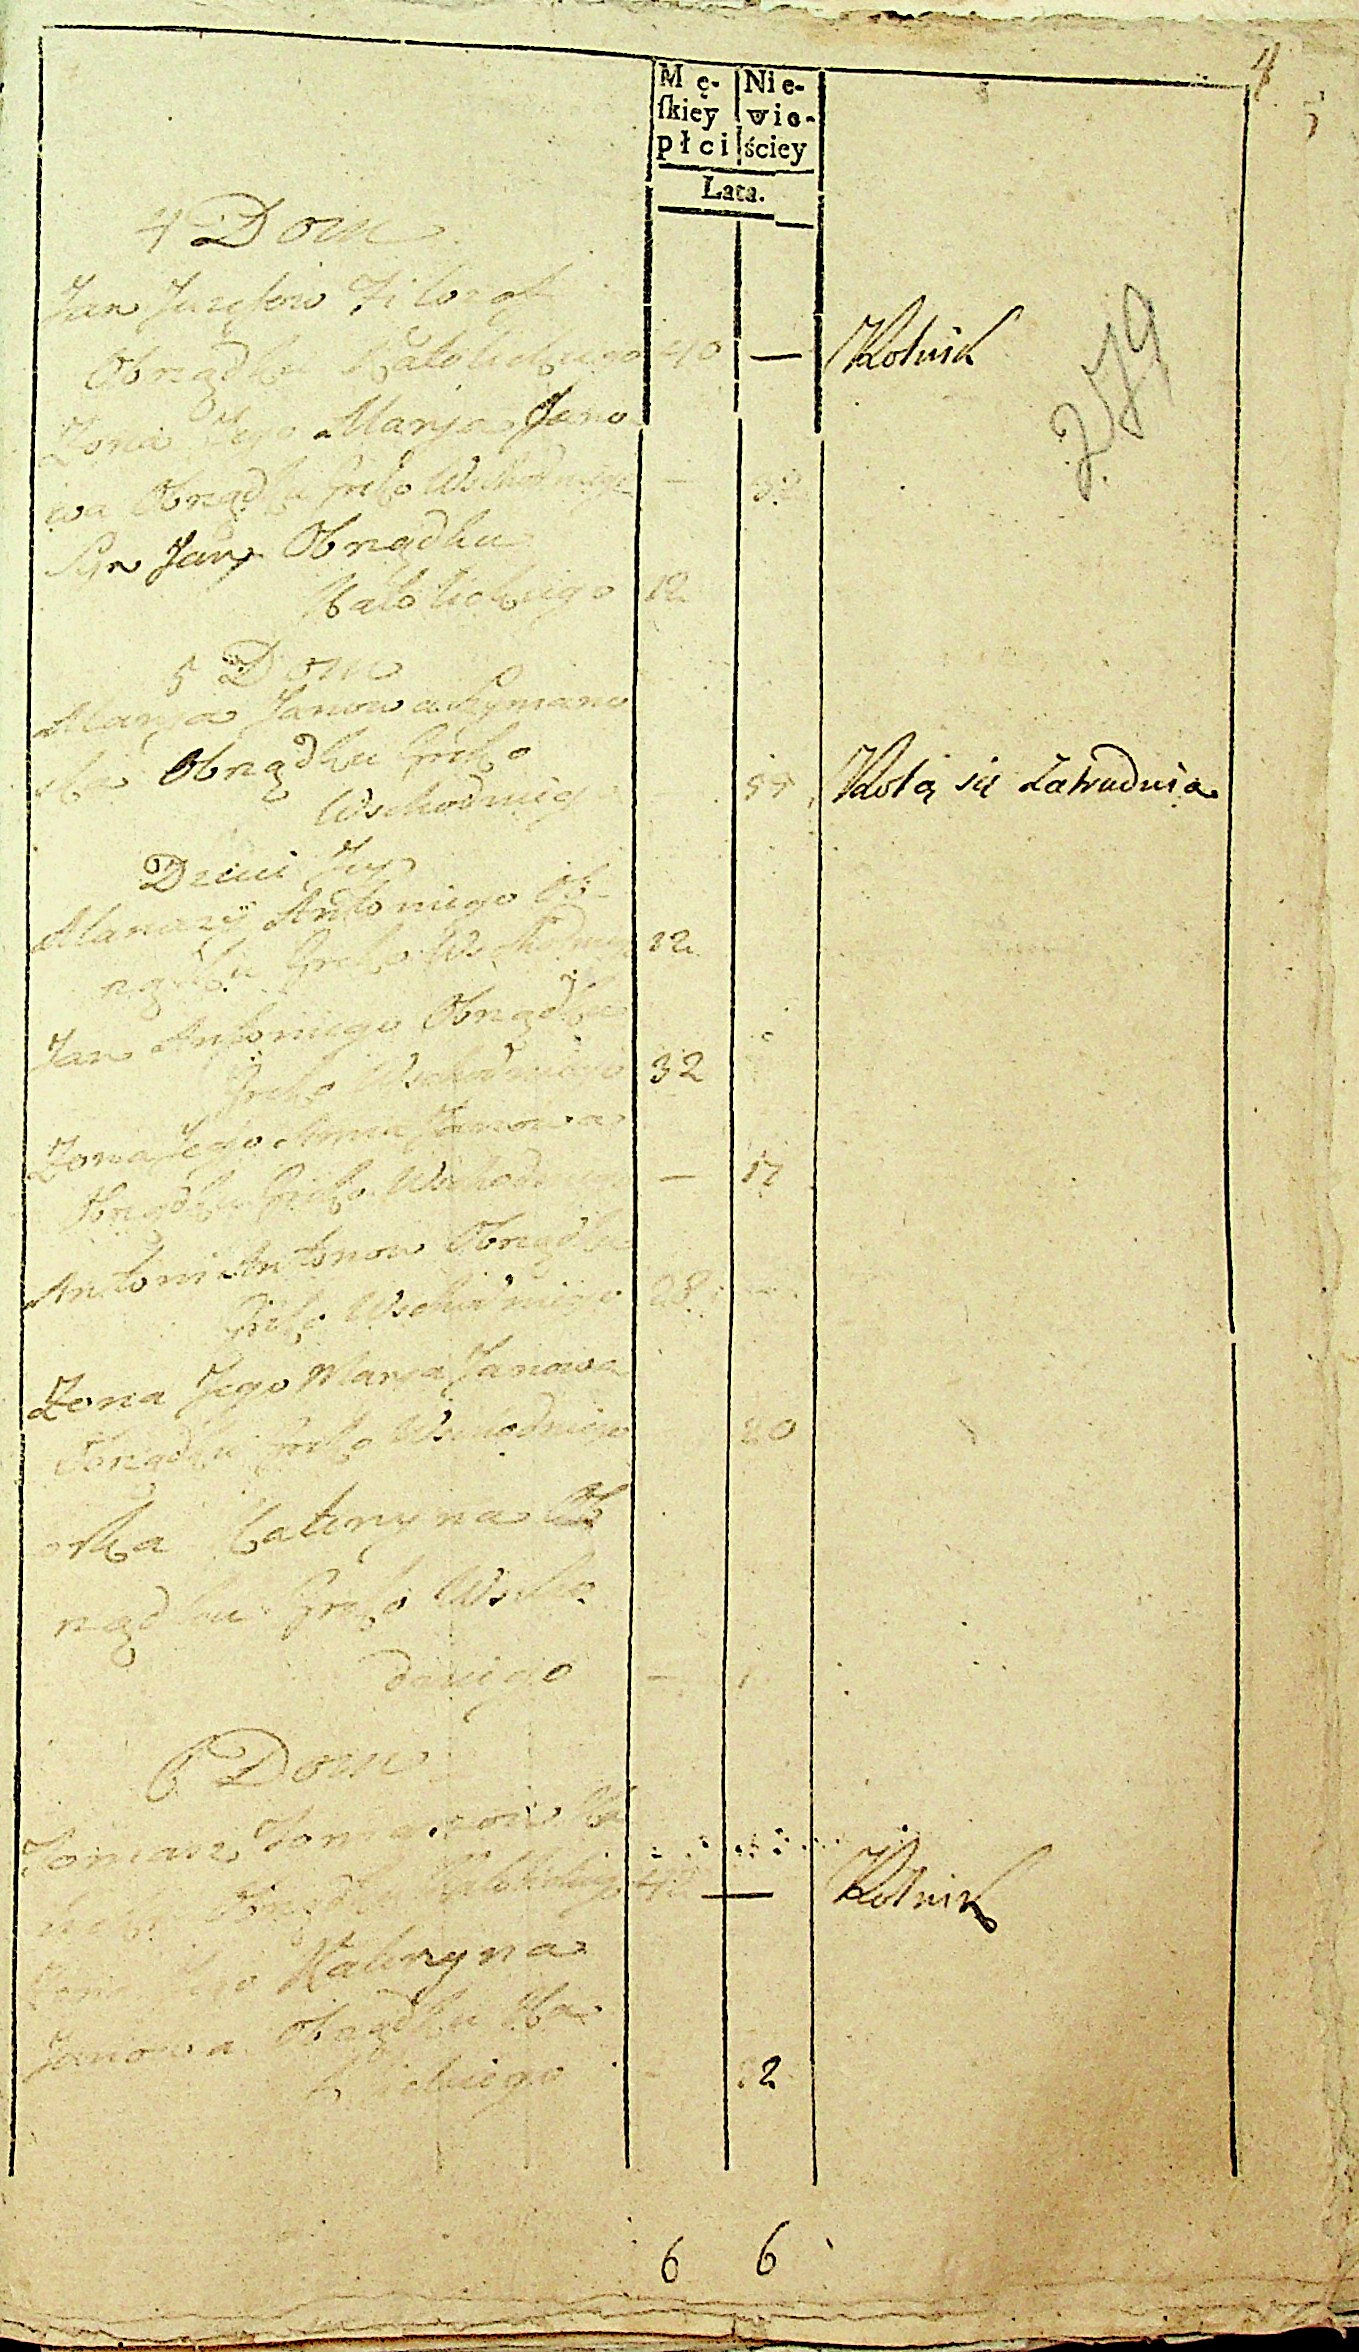 4
Mę- Nie-
ſkiey wie-
płci ściey
Lata.
4 Dom
Jan Juzefow
Obrządku Katolickiego 40 — Rolnik
279
Zona Jego Marya Jano
wa Obrządku Greko Wschodniego — 32
Syn Jan Obrządku
Katolickiego 12
5 Dom
Marya Janowa Szymano
wa Obrządku Greko
Wschodnieg 55 Rolą się Zatrudnia
Dzieci Jey
Antoniego Ob-
rządku Greko Wschodnieg 12
Jan Antoniego Obrządku
Greko Wschodniego 32
Zona Jego Anna Janowa
Obrządku Greko Wschodniego — 17
Antoni Antonow Obrządku
Greko Wschodniego 28 —
Zona Jego Marya Janowa
Obrządku Greko Wschodniego 20
Katerzyna Ob
rządku Greko Wscho
dniego —
6 Dom
Tomasz Tomaszow
Obrządku Katolickiego 42 — Rolnik
Zona Jego Katerzyna
Janowa Obrządku Ka
tolickiego - 32
6 6